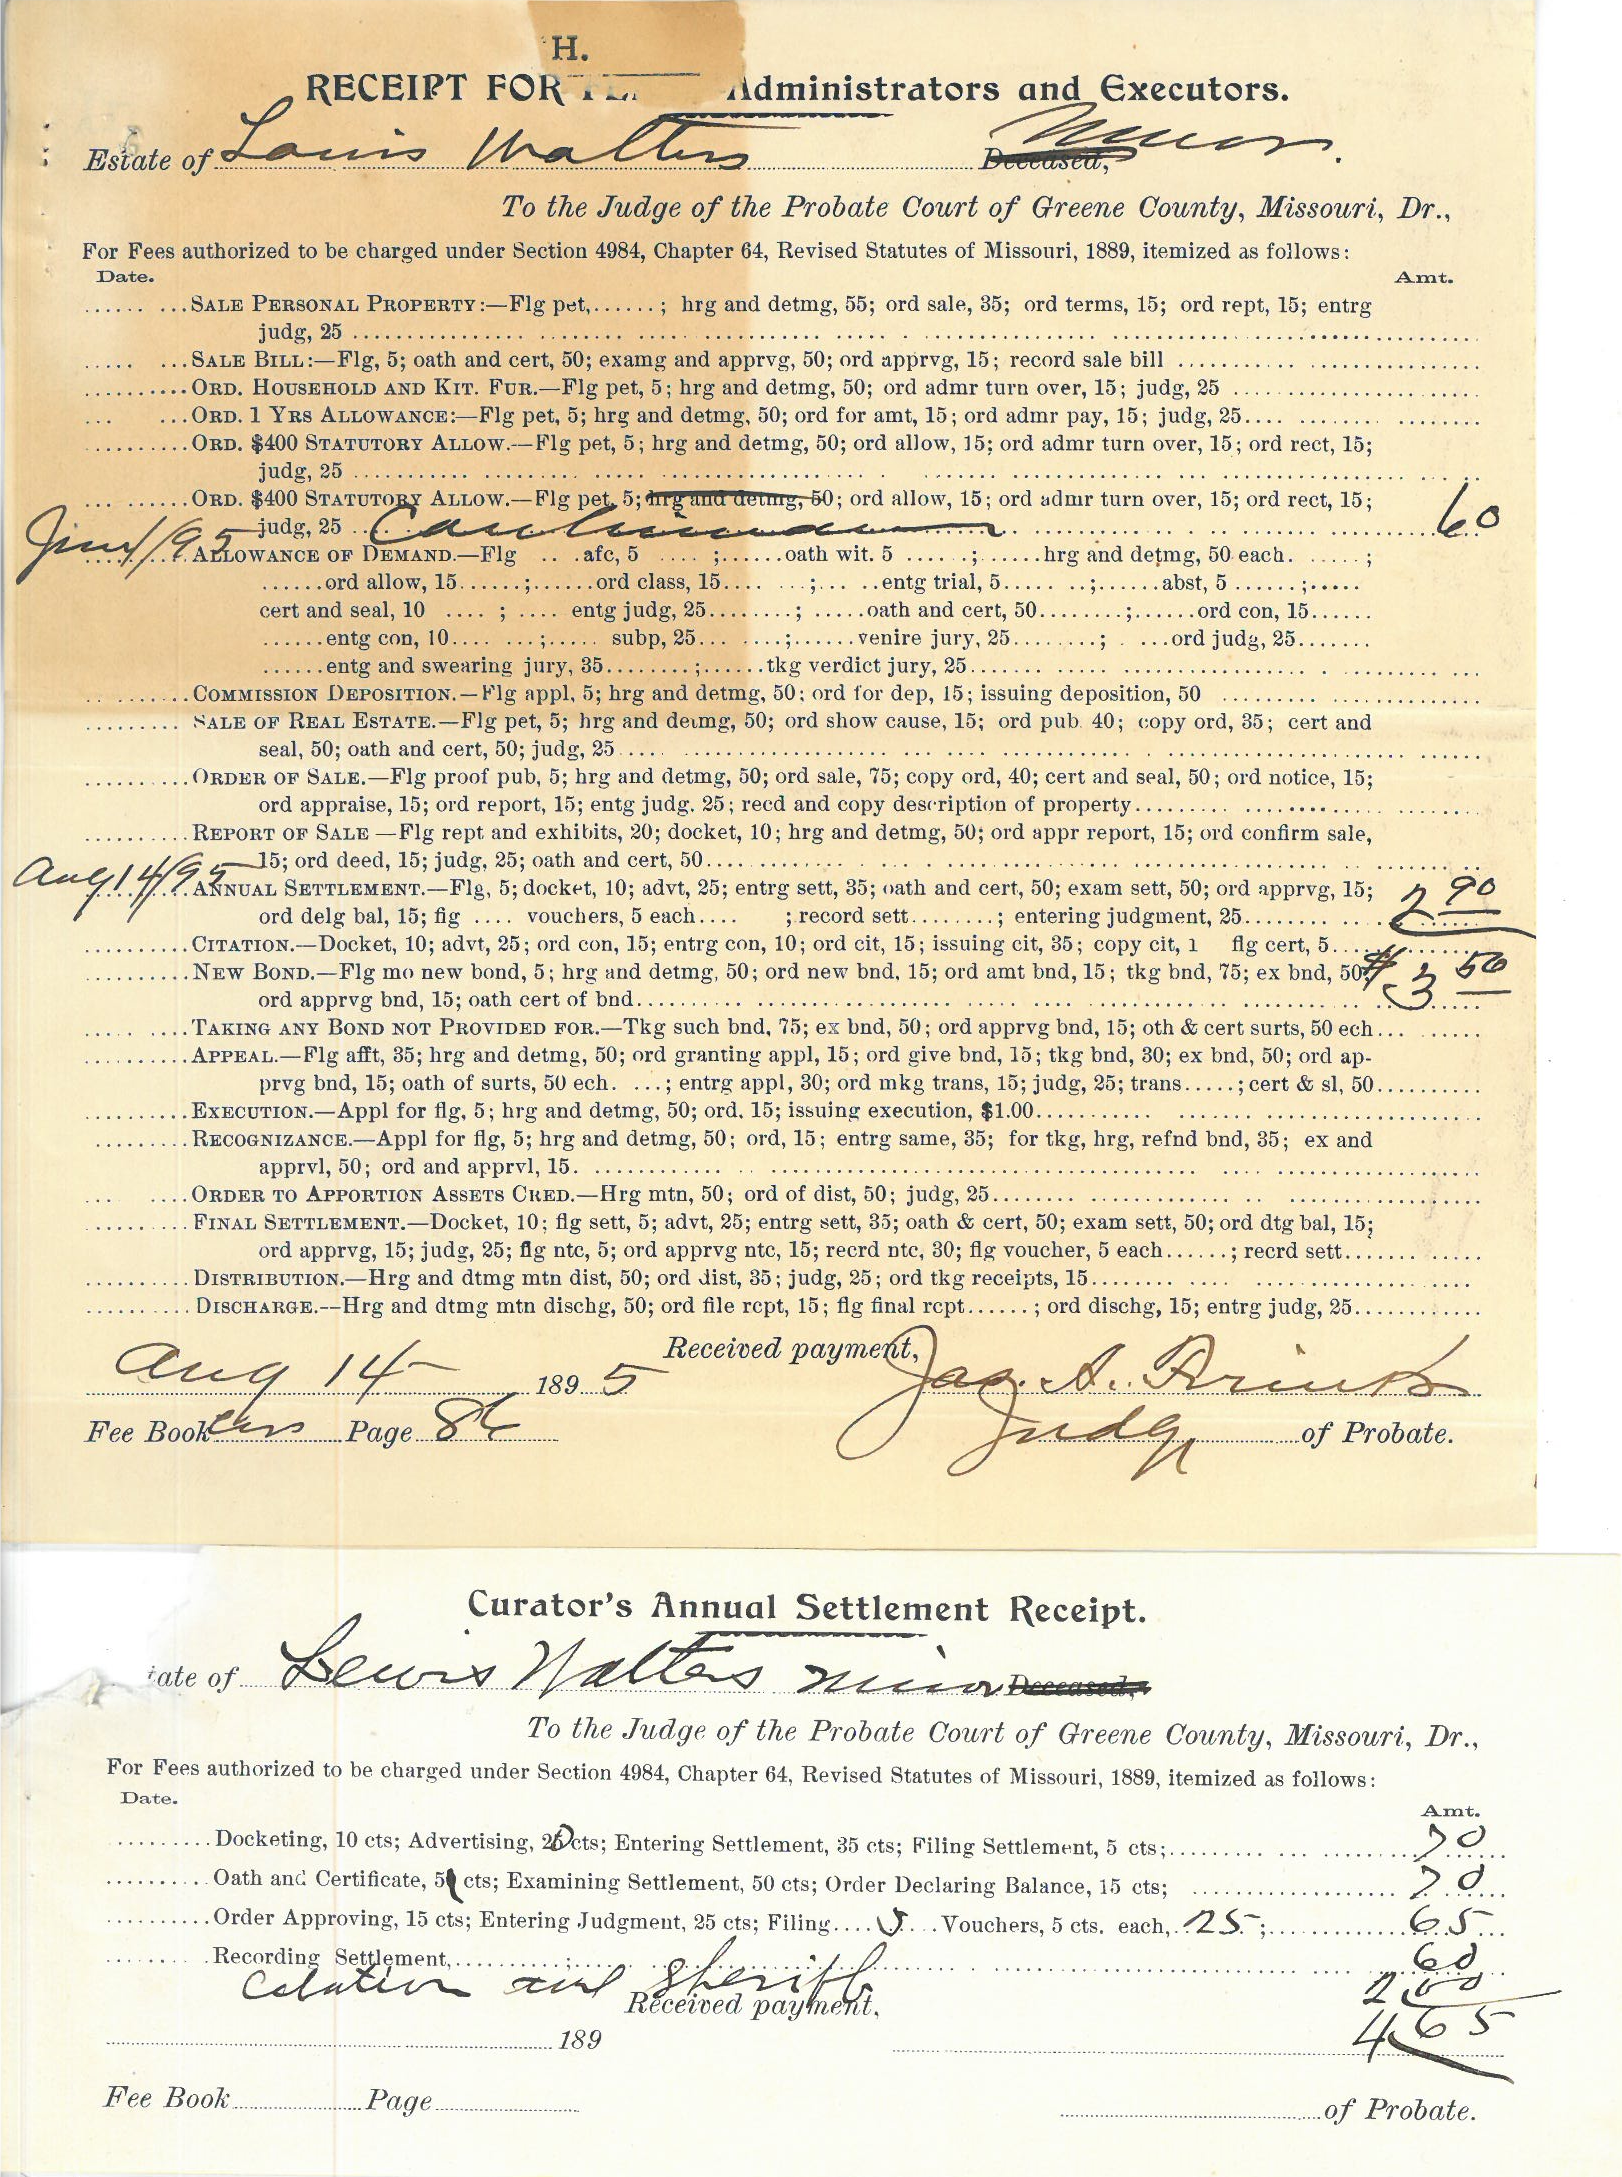 H.
RECEIPT FOR Administrators and Executors.
Estate of Louis Walters Deceased, Minor.
To the Judge of the Probate Court of Greene County, Missouri, Dr.,
For Fees authorized to be charged under Section 4984, Chapter 64, Revised Statutes of Missouri, 1889, itemized as follows:
Date. Amt.
SALE PERSONAL PROPERTY:—Flg pet,......; hrg and detmg, 55; ord sale, 35; ord terms, 15; ord rept, 15; entrg
judg, 25
SALE BILL:—Flg, 5; oath and cert, 50; examg and apprvg, 50; ord apprvg, 15; record sale bill
ORD. HOUSEHOLD AND KIT. FUR.—Flg pet, 5; hrg and detmg, 50; ord admr turn over, 15; judg, 25
ORD. 1 YRS ALLOWANCE:—Flg pet, 5; hrg and detmg, 50; ord for amt, 15; ord admr pay, 15; judg, 25
ORD. $400 STATUTORY ALLOW.—Flg pet, 5; hrg and detmg, 50; ord allow, 15; ord admr turn over, 15; ord rect, 15;
judg, 25
ORD. $400 STATUTORY ALLOW.—Flg pet, 5; hrg and detmg, 50; ord allow, 15; ord admr turn over, 15; ord rect, 15;
judg, 25 60
/95 ALLOWANCE OF DEMAND.—Flg .... afc, 5 ....;......oath wit. 5 .....;......hrg and detmg, 50 each. .....;
......ord allow, 15......;......ord class, 15.......;.....entg trial, 5.......;......abst, 5......;.....
cert and seal, 10 ....; .... entg judg, 25........; .....oath and cert, 50........;......ord con, 15......
......entg con, 10.......;..... subp, 25.......;......venire jury, 25........; .....ord judg, 25.......
......entg and swearing jury, 35........;......tkg verdict jury, 25
COMMISSION DEPOSITION.—Flg appl, 5; hrg and detmg, 50; ord for dep, 15; issuing deposition, 50
SALE OF REAL ESTATE.—Flg pet, 5; hrg and detmg, 50; ord show cause, 15; ord pub. 40; copy ord, 35; cert and
seal, 50; oath and cert, 50; judg, 25
ORDER OF SALE.—Flg proof pub, 5; hrg and detmg, 50; ord sale, 75; copy ord, 40; cert and seal, 50; ord notice, 15;
ord appraise, 15; ord report, 15; entg judg. 25; recd and copy description of property
REPORT OF SALE—Flg rept and exhibits, 20; docket, 10; hrg and detmg, 50; ord appr report, 15; ord confirm sale,
15; ord deed, 15; judg, 25; oath and cert, 50
Aug 14/95 ANNUAL SETTLEMENT.—Flg, 5; docket, 10; advt, 25; entrg sett, 35; oath and cert, 50; exam sett, 50; ord apprvg, 15;
ord delg bal, 15; fig .... vouchers, 5 each.... ; record sett........; entering judgment, 25 2 90
CITATION.—Docket, 10; advt, 25; ord con, 15; entrg con, 10; ord cit, 15; issuing cit, 35; copy cit, 1 flg cert, 5
NEW BOND.—Flg mo new bond, 5; hrg and detmg, 50; ord new bnd, 15; ord amt bnd, 15; tkg bnd, 75; ex bnd, 50;
ord apprvg bnd, 15; oath cert of bnd $3 50
TAKING ANY BOND NOT PROVIDED FOR.—Tkg such bnd, 75; ex bnd, 50; ord apprvg bnd, 15; oth & cert surts, 50 ech
APPEAL.—Flg afft, 35; hrg and detmg, 50; ord granting appl, 15; ord give bnd, 15; tkg bnd, 30; ex bnd, 50; ord ap-
prvg bnd, 15; oath of surts, 50 ech. ...; entrg appl, 30; ord mkg trans, 15; judg, 25; trans.....; cert & sl, 50
EXECUTION.—Appl for flg, 5; hrg and detmg, 50; ord. 15; issuing execution, $1.00
RECOGNIZANCE.—Appl for flg, 5; hrg and detmg, 50; ord, 15; entrg same, 35; for tkg, hrg, refnd bnd, 35; ex and
apprvl, 50; ord and apprvl, 15.
ORDER TO APPORTION ASSETS CRED.—Hrg mtn, 50; ord of dist, 50; judg, 25
FINAL SETTLEMENT.—Docket, 10; flg sett, 5; advt, 25; entrg sett, 35; oath & cert, 50; exam sett, 50; ord dtg bal, 15;
ord apprvg, 15; judg, 25; flg ntc, 5; ord apprvg ntc, 15; recrd ntc, 30; flg voucher, 5 each......; recrd sett
DISTRIBUTION.—Hrg and dtmg mtn dist, 50; ord dist, 35; judg, 25; ord tkg receipts, 15
DISCHARGE.--Hrg and dtmg mtn dischg, 50; ord file rcpt, 15; flg final rcpt......; ord dischg, 15; entrg judg, 25
Received payment,
Aug 14 1895 Jas. A.
Fee Book Page 86 Judge of Probate.
Curator's Annual Settlement Receipt.
tate of Lewis Walters minor Deceased,
To the Judge of the Probate Court of Greene County, Missouri, Dr.,
For Fees authorized to be charged under Section 4984, Chapter 64, Revised Statutes of Missouri, 1889, itemized as follows:
Date. Amt.
Docketing, 10 cts; Advertising, 20 cts; Entering Settlement, 35 cts; Filing Settlement, 5 cts; 70
Oath and Certificate, 5 cts; Examining Settlement, 50 cts; Order Declaring Balance, 15 cts; 70
Order Approving, 15 cts; Entering Judgment, 25 cts; Filing....5....Vouchers, 5 cts. each, 25; 65
Recording Settlement, 60
Citation and Sheriff 2.00
Received payment, 4.65
189
Fee Book Page of Probate.